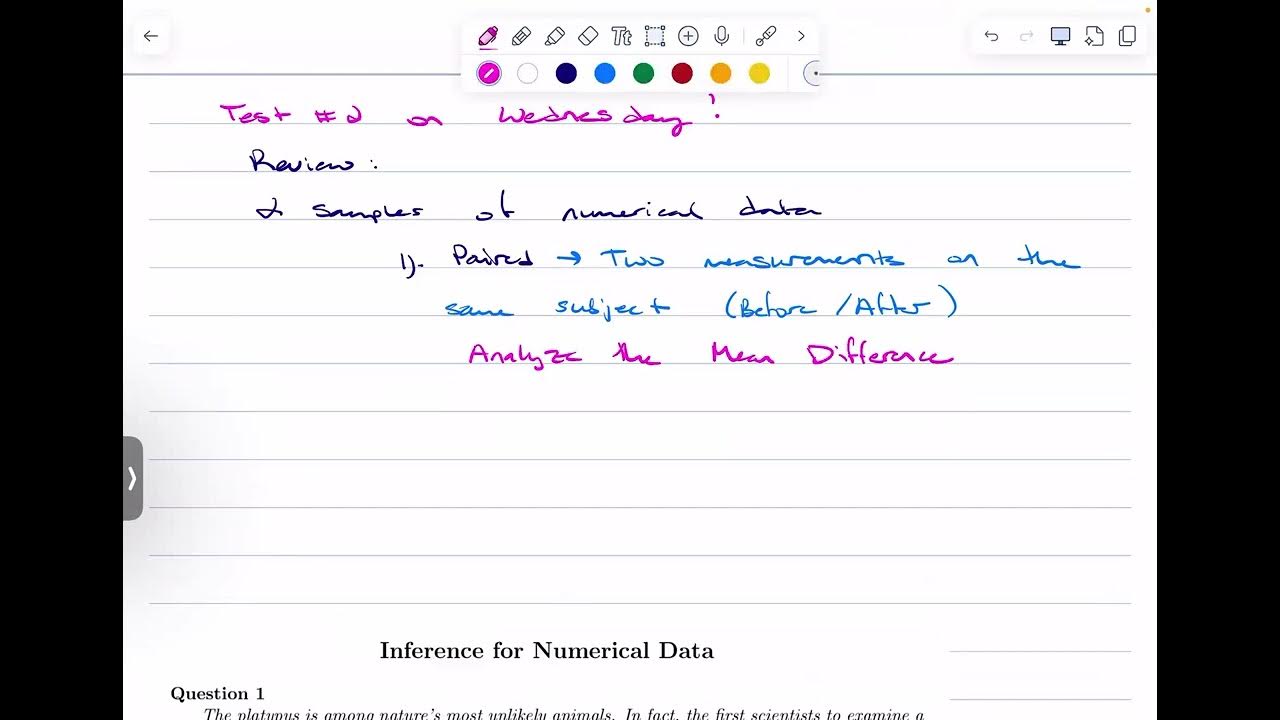 Tt
Test #2 on Wednesday!
Review:
2 samples of numerical data
1). Paired → Two measurements on the
same subject (Before/After)
Analyze the Mean Difference
Inference for Numerical Data
Question 1
The platypus is among nature's most unlikely animals. In fact, the first scientists to examine a